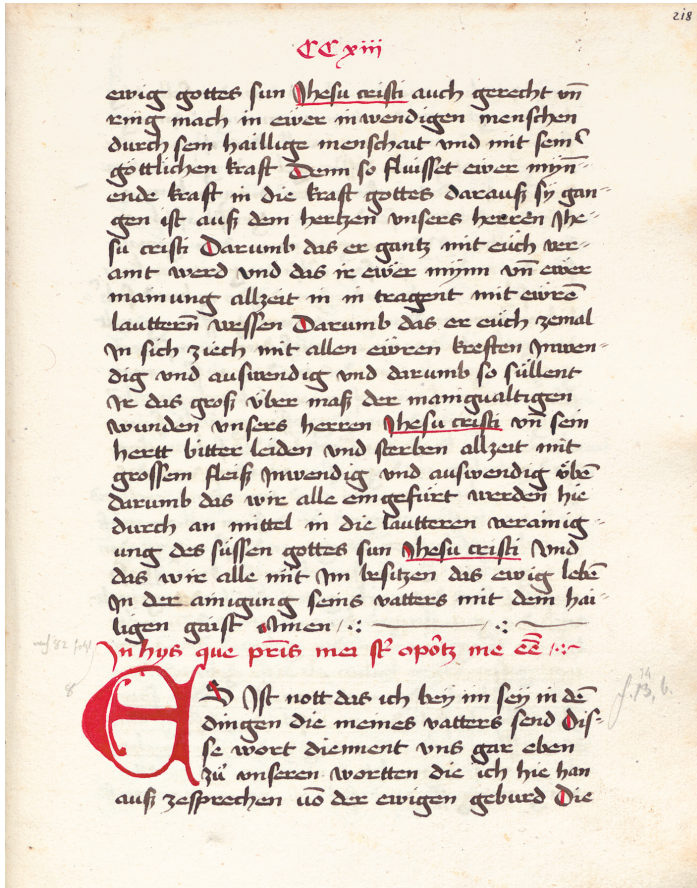 218
CCxiii
ewig gottes sun Jhesu cristi auch gerecht vn̄
ring mach in ewer inwendigen menschen
durch sein haillige menschait vnd mit seinͨ
göttlichen kraft Denn so fluisset ewer mynn̄=
ende kraft in die kraft gottes darauß sy gan=
gen ist auß dem hertzen vnsers herren Jhe=
su cristi Darumb das er gantz mit eüch ver=
aint werd vnd das ir ewer mynn vn̄ ewer
mainung allzeit in in tragent mit ewrē
lauttern̄ wissen Darumb das er euch zemal
Jn sich ziech mit allen ewren kreften Jnwen=
dig vnd auswendig vnd darumb so süllent
Jr das groß über maß der manigualtigen
wunden vnsers herren Jhesu cristi vn̄ sein
hertt bitter leiden vnd sterben allzeit mit
grossem fleiß Jnwendig vnd auswendig übē
darumb das wir alle eingefürt werden hie
durch an mittel in die lautteren verainig=
ung des süssen gottes sun Jhesu cristi Vnd
das wir alle mit Jm besitzen das ewig lebē
Jn der ainigung seins vatters mit dem hai=
ligen gaist Amen
Jn hys que pr̄is mei st̄ opōtz me eē
ES Jst nott das ich bey im sey in dē
dingen die meines vatters send Dis=
se wort diennent vns gar eben
zü vnseren wortten die ich hie han
auß zesprechen vō der ewigen geburd Die